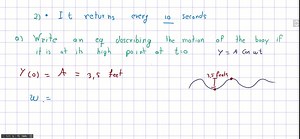 2) • It returns every 10 seconds
a) Write an eq describing the motion of the body if
it is at its high point at t=0
Y = A Cos wt
Y(0) = A = 3,5 feet
3.5 feet
w =